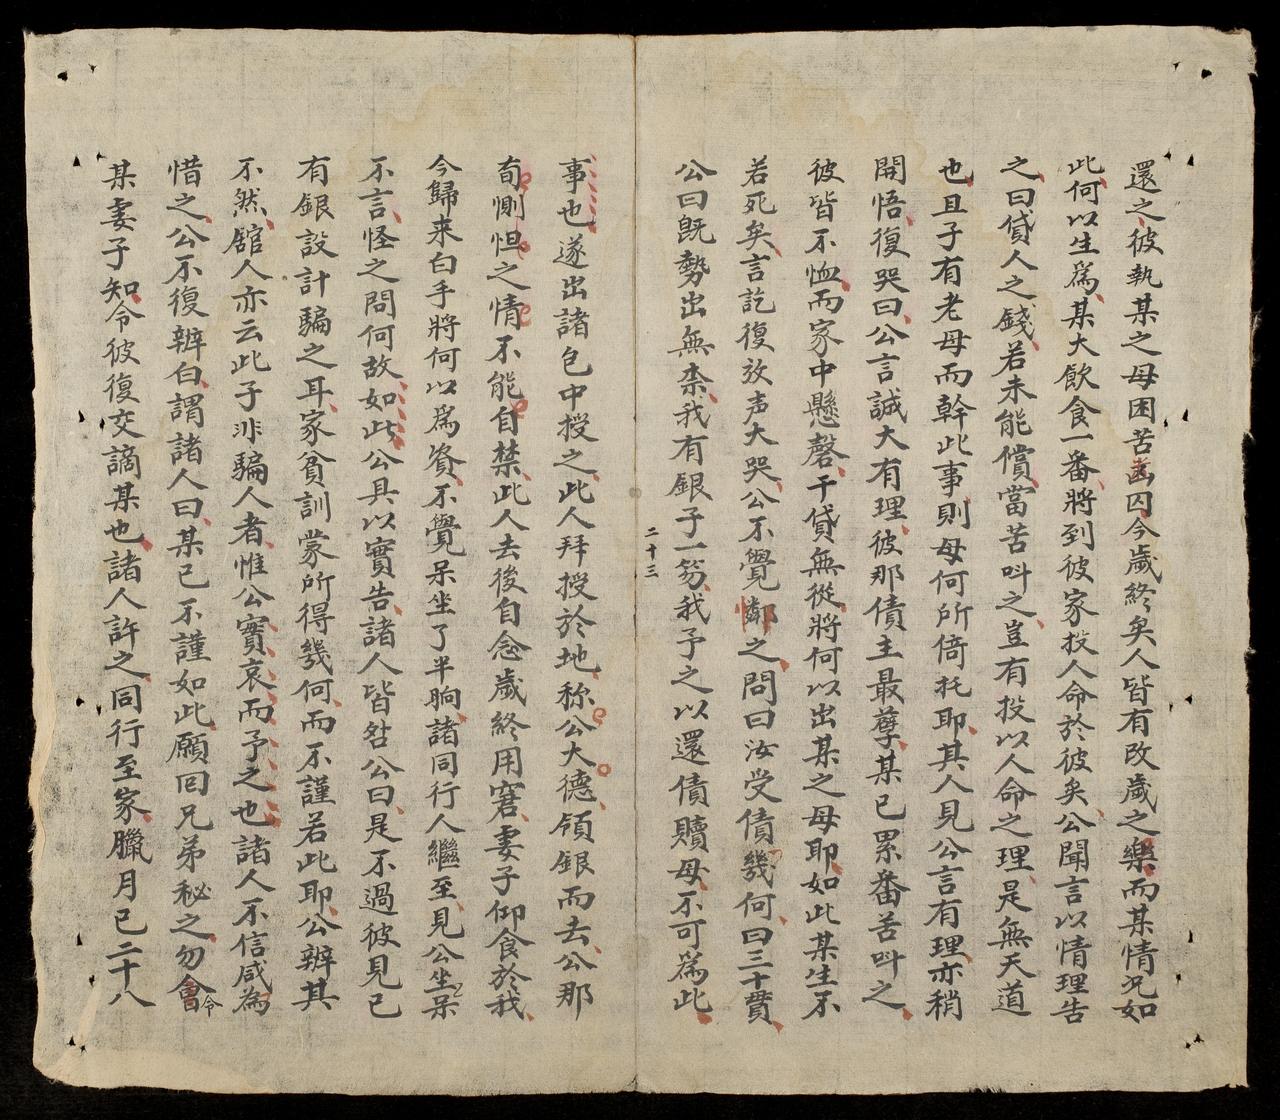 還之彼執某之母困苦凾囚今歲終矣人皆有改歲之樂而某情况如
此何以生爲某大飲食一番將到彼家投人命於彼矣公聞言以情理告
之曰貸人之錢若未能償當苦呌之豈有投以人命之理是無天道
也且子有老母而幹此事則母何所倚托耶其人見公言有理亦稍
開悟復哭曰公言誠大有理彼那債主最孽某已累番苦呌之
彼皆不恤而家中懸磬干貸無從將何以出某之母耶如此某生不
若死矣言訖復放声大哭公不覺鄰之問曰汝受債幾何曰三十貫
公曰旣勢出無柰我有銀子一笏我予之以還債贖母不可爲此
二十三
事也遂出諸包中授之此人拜授於地称公大德領銀而去公那
荀惻怛之情不能自禁此人去後自念歲終用窘妻子仰食於我
今歸来白手將何以爲資不覺呆坐了半晌諸同行人繼至見公坐呆
不言怪之問何故如此公具以實告諸人皆咎公曰是不過彼見已
有銀設計騙之耳家貧訓蒙所得幾何而不謹若此耶公辨其
不然舘人亦云此子非騙人者惟公實哀而予之也諸人不信咸為
惜之公不復辨白謂諸人曰某已不謹如此願囘兄弟秘之勿會令
某妻子知令彼復交謫某也諸人許之同行至家臘月已二十八